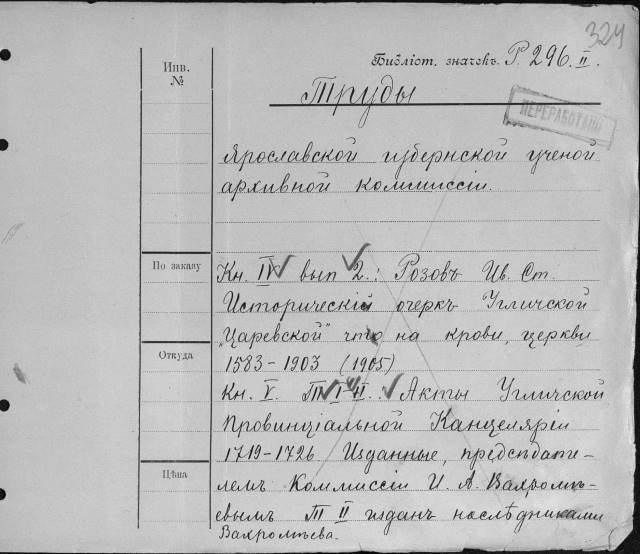 324
Библіот. значекъ P. 296. II.
Инв.
№
Труды
ПЕРЕРАБОТАНО
Ярославской губернской ученой
архивной коммиссіи.
По заказу
Кн. IV вып 2.: Розовъ Ив. Ст.
Историческій очеркъ Угличской
"Царевской" что на крови, церкви
1583-1903 (1905)
Откуда
Кн. V. Т I-II. Акты Угличской
Провинціальной Канцеляріи
1719-1726. Изданные, предсѣдате-
Цѣна
лемъ Коммиссіи И. А. Вахромѣ-
евымъ Т II изданъ наслѣдниками
Вахромѣева.